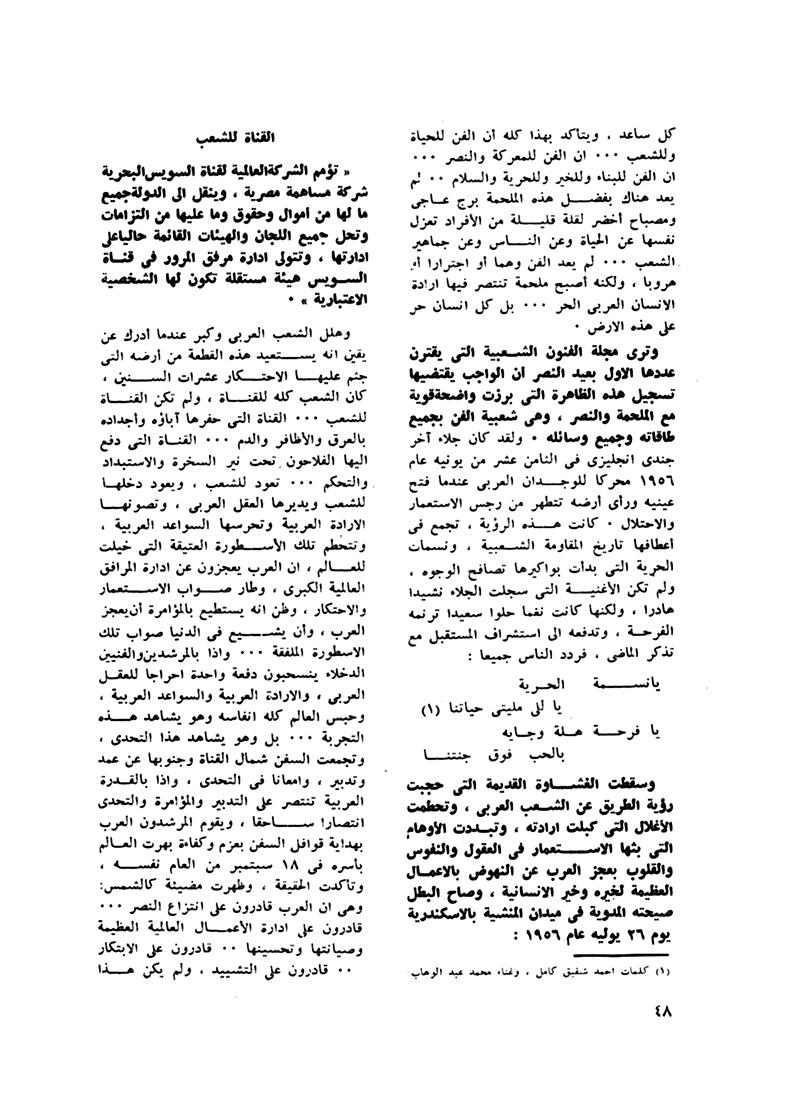 كل ساعد ، ويتأكد بهذا كله أن الفن للحياة
وللشعب ٠٠٠ ان الفن للمعركة والنصر ٠٠٠
ان الفن للبناء وللخير وللحرية والسلام ٠٠ لم
يعد هناك بفضل هذه الملحمة برج عاجى
ومصباح أخضر لقلة قليلة من الأفراد تعزل
نفسها عن الحياة وعن الناس وعن جماهير
الشعب ٠٠٠ لم يعد الفن وهما أو اجترارا أو
هروبا ، ولكنه أصبح ملحمة تنتصر فيها ارادة
الانسان العربى الحر ٠٠٠ بل كل انسان حر
على هذه الارض ٠
وترى مجلة الفنون الشعبية التى يقترن
عددها الاول بعيد النصر أن الواجب يقتضيها
تسجيل هذه الظاهرة التى برزت واضحة قوية
مع الملحمة والنصر ، وهى شعبية الفن بجميع
طاقاته وجميع وسائله ٠ ولقد كان جلاء آخر
جندى انجليزى فى الثامن عشر من يونيه عام
١٩٥٦ محركا للوجدان العربى عندما فتح
عينيه ورأى أرضه تتطهر من رجس الاستعمار
والاحتلال ٠ كانت هذه الرؤية ، تجمع فى
أعطافها تاريخ المقاومة الشعبية ، ونسمات
الحرية التى بدأت بواكيرها تصافح الوجوه ،
ولم تكن الأغنية التى سجلت الجلاء نشيدا
هادرا ، ولكنها كانت نغما حلوا سعيدا ترنمه
الفرحة ، وتدفعه الى استشراف المستقبل مع
تذكر الماضى ، فردد الناس جميعا :
يانسمة الحرية
يا للى مليتى حياتنا (١)
يا فرحة هلة وجايه
بالحب فوق جنتنا
وسقطت الغشاوة القديمة التى حجبت
رؤية الطريق عن الشعب العربى ، وتحطمت
الأغلال التى كبلت ارادته ، وتبددت الأوهام
التى بثها الاستعمار فى العقول والنفوس
والقلوب بعجز العرب عن النهوض بالاعمال
العظيمة لخيره وخير الانسانية ، وصاح البطل
صيحته المدوية فى ميدان المنشية بالاسكندرية
يوم ٢٦ يوليه عام ١٩٥٦ :
(١) كلمات احمد شفيق كامل ، وغناء محمد عبد الوهاب
القناة للشعب
« تؤمم الشركة العالمية لقناة السويس البحرية
شركة مساهمة مصرية ، وينقل الى الدولة جميع
ما لها من أموال وحقوق وما عليها من التزامات
وتحل جميع اللجان والهيئات القائمة حاليا على
ادارتها ، وتتولى ادارة مرفق المرور فى قناة
السويس هيئة مستقلة تكون لها الشخصية
الاعتبارية » ٠
وهلل الشعب العربى وكبر عندما أدرك عن
يقين انه يستعيد هذه القطعة من أرضه التى
جثم عليها الاحتكار عشرات السنين ،
كان الشعب كله للقناة ، ولم تكن القناة
للشعب ٠٠٠ القناة التى حفرها آباؤه وأجداده
بالعرق والأظافر والدم ٠٠٠ القناة التى دفع
اليها الفلاحون تحت نير السخرة والاستبداد
والتحكم ٠٠٠ تعود للشعب ، ويعود دخلها
للشعب ويديرها العقل العربى ، وتصونها
الارادة العربية وتحرسها السواعد العربية ،
وتتحطم تلك الأسطورة العتيقة التى خيلت
للعالم ، ان العرب يعجزون عن ادارة المرافق
العالمية الكبرى ، وطار صواب الاستعمار
والاحتكار ، وظن انه يستطيع بالمؤامرة أن يعجز
العرب ، وأن يشيع فى الدنيا صواب تلك
الاسطورة الملفقة ٠٠٠ واذا بالمرشدين والفنيين
الدخلاء ينسحبون دفعة واحدة احراجا للعقل
العربى ، والارادة العربية والسواعد العربية ،
وحبس العالم كله انفاسه وهو يشاهد هذه
التجربة ٠٠٠ بل وهو يشاهد هذا التحدى ،
وتجمعت السفن شمال القناة وجنوبها عن عمد
وتدبير ، وامعانا فى التحدى ، واذا بالقدرة
العربية تنتصر على التدبير والمؤامرة والتحدى
انتصارا ساحقا ، ويقوم المرشدون العرب
بهداية قوافل السفن بعزم وكفاءة بهرت العالم
بأسره فى ١٨ سبتمبر من العام نفسه ،
وتأكدت الحقيقة ، وظهرت مضيئة كالشمس:
وهى ان العرب قادرون على انتزاع النصر ٠٠٠
قادرون على ادارة الأعمال العالمية العظيمة
وصيانتها وتحسينها ٠٠ قادرون على الابتكار
٠٠ قادرون على التشييد ، ولم يكن هذا
٤٨